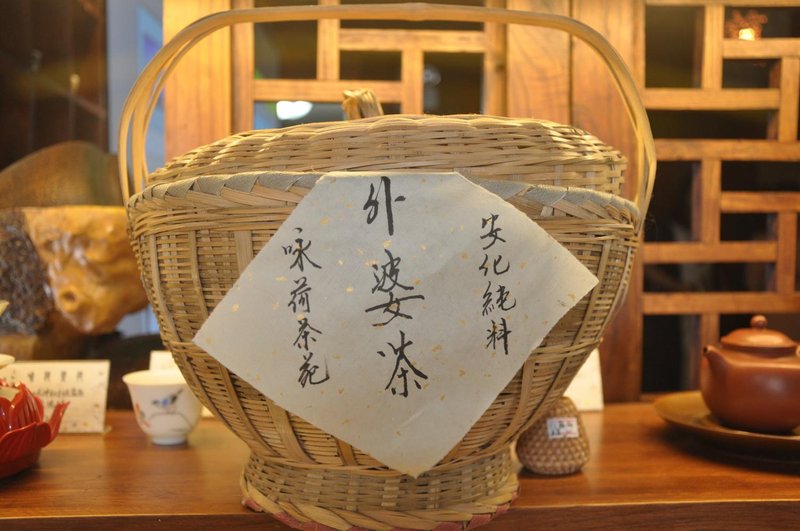 安化純料
外婆茶
咏荷茶苑